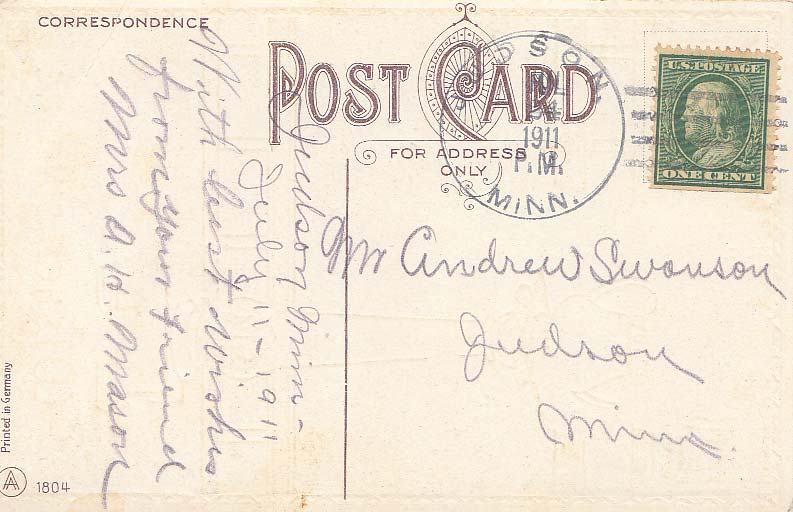 CORRESPONDENCE
POST CARD
FOR ADDRESS
ONLY
JUDSON,
JUL
24
1911
P.M.
MINN.
U.S. POSTAGE
ONE CENT
Judson Minn-
July 11-1911
With best Wishes
from your friend
Mrs A. H. Mason
Mr Andrew Swanson
Judson
Minn.
Printed in Germany
AA 1804